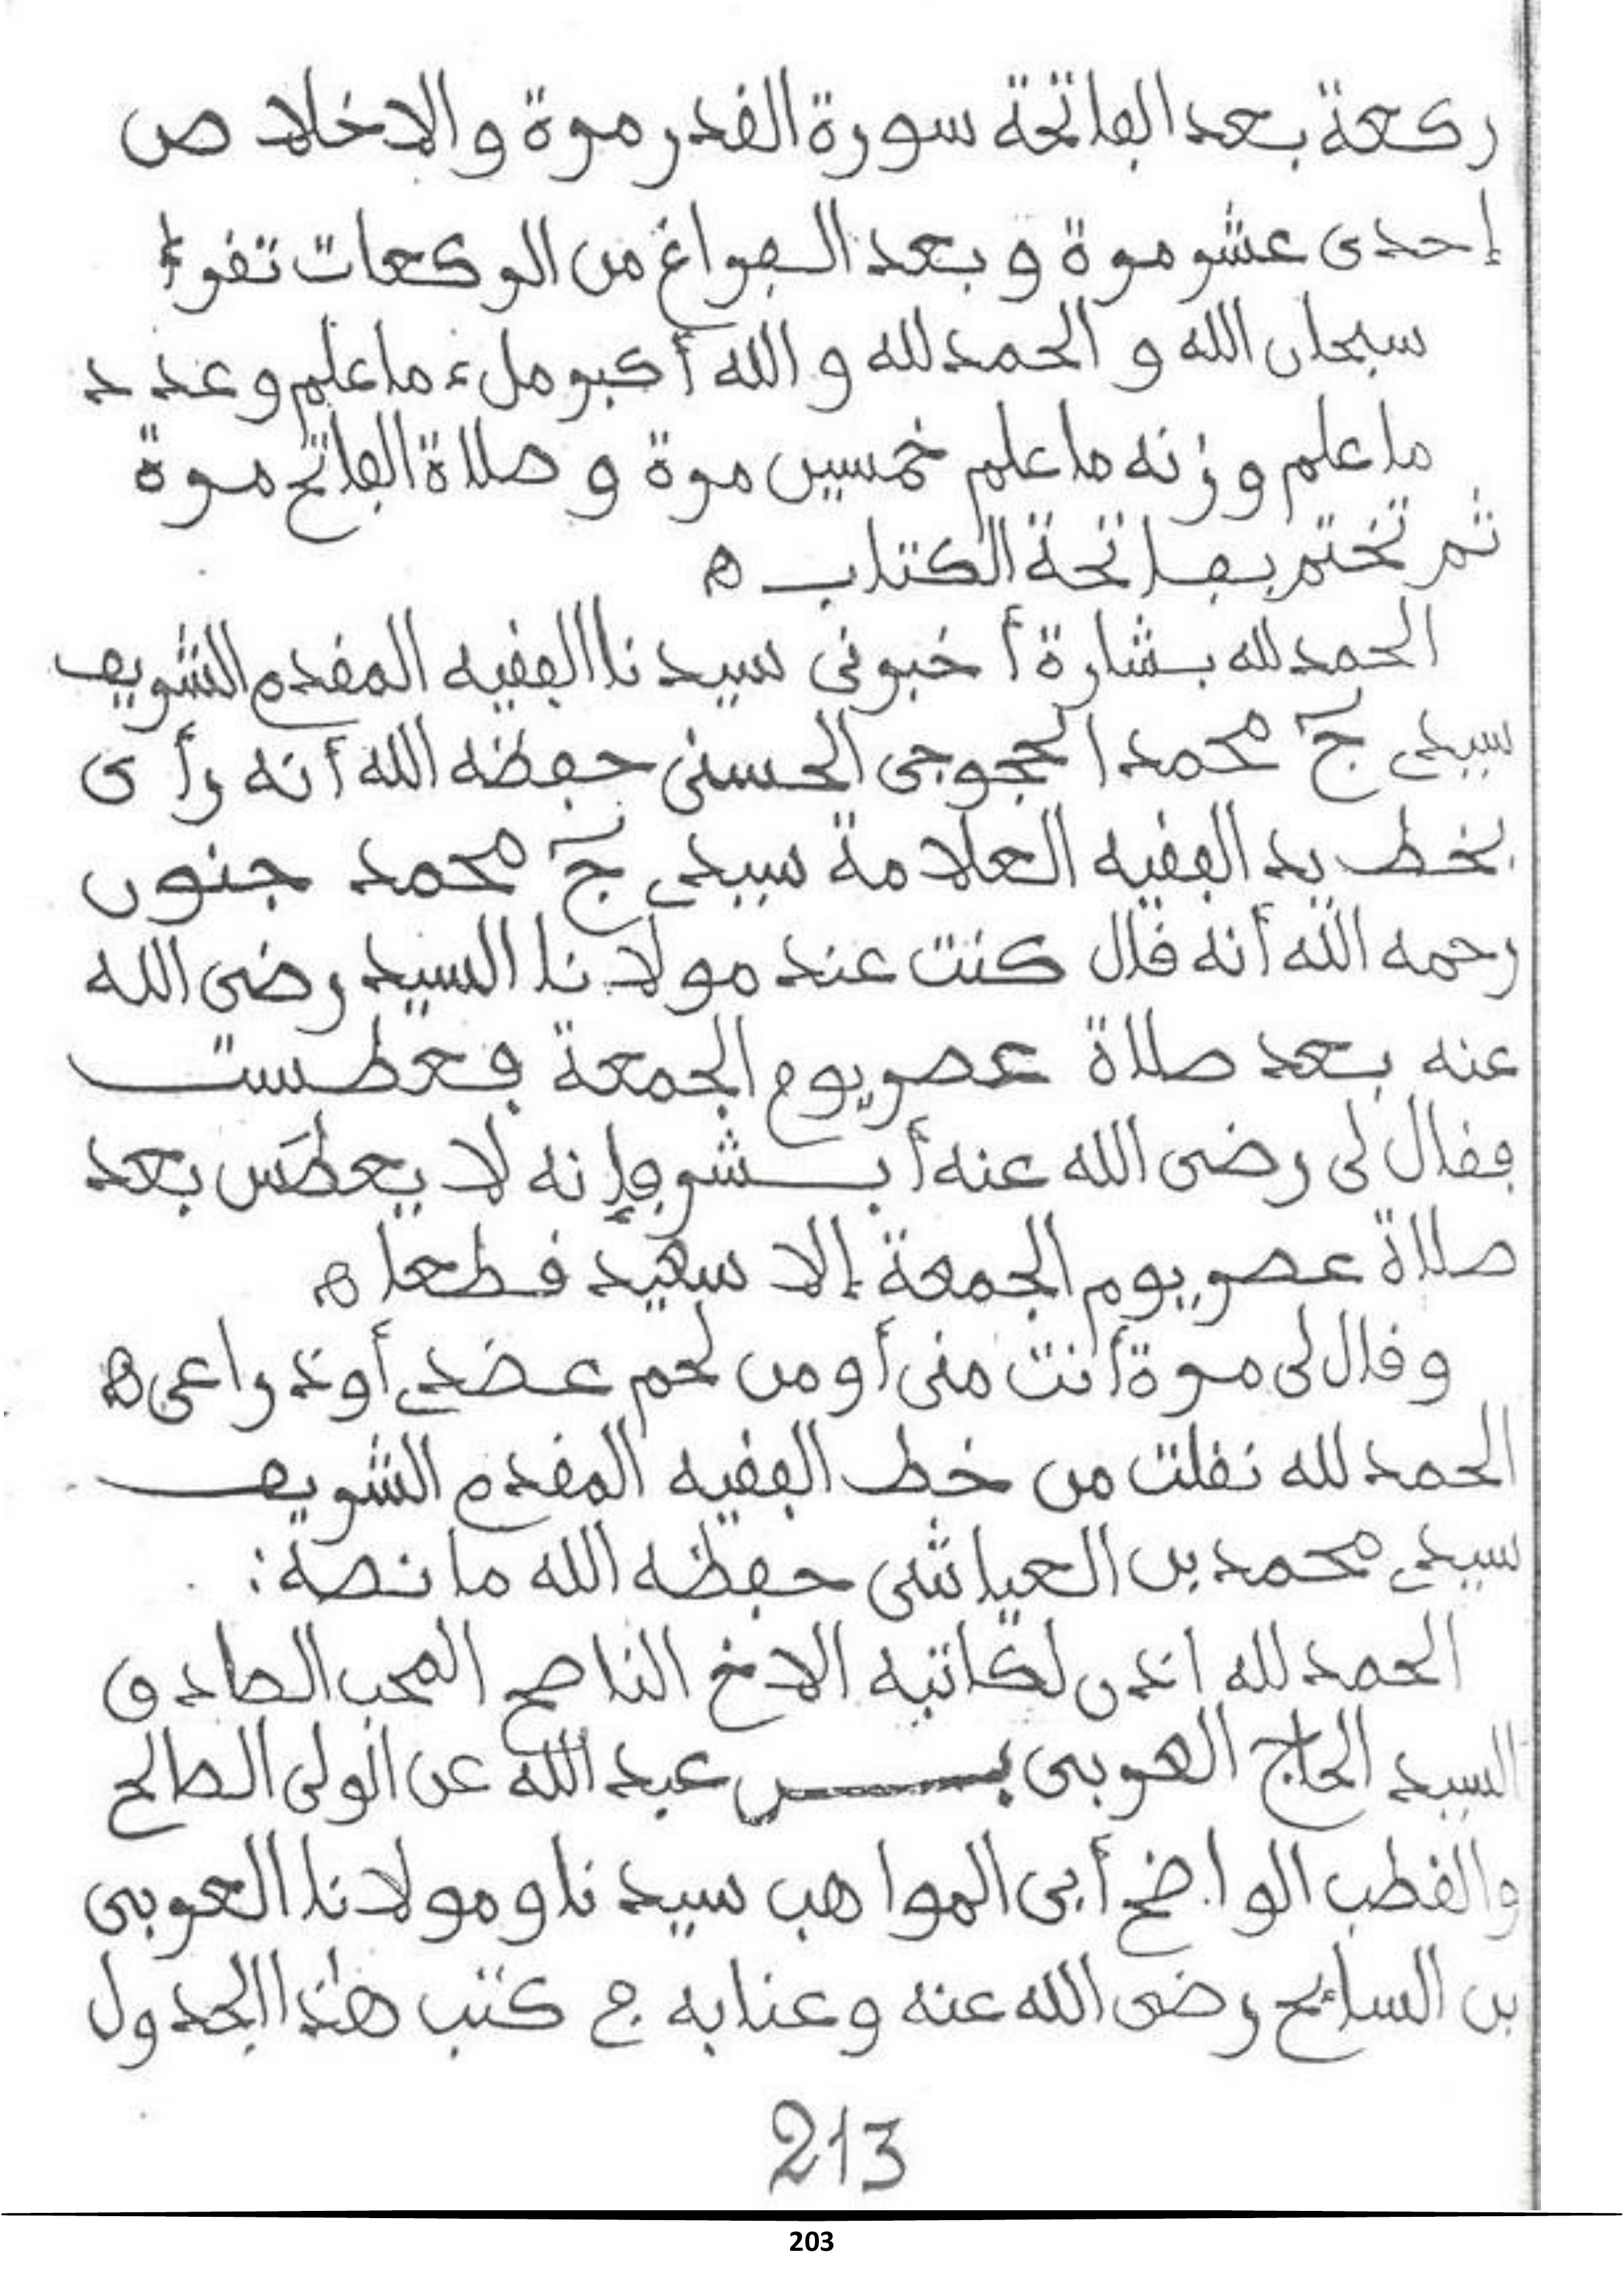 ركعة بعد الفاتحة سورة القدر مرة والاخلاص
إحدى عشر مرة و بعد الفراغ من الركعات تقرأ
سبحان الله و الحمد لله و الله أكبر ملء ما علم و عدد
ما علم و زنه ما علم خمسين مرة و صلاة الفاتح مرة
ثم تختم بفاتحة الكتاب ه
الحمد لله بشارة أخبرنى سيدنا الفقيه المقدم الشريف
سيدي ج محمد الحجوجى الحسنى حفظه الله أنه رأى
بخط يد الفقيه العلامة سيدي ج محمد جنون
رحمه الله أنه قال كنت عند مولانا السيد رضى الله
عنه بعد صلاة عصر يوم الجمعة فعطست
فقال لى رضى الله عنه أبشر فإنه لا يعطس بعد
صلاة عصر يوم الجمعة إلا سعيد قطعا ه
و قال لى مرة أنت منى أو من لحم عضدي أو ذراعى ه
الحمد لله نقلت من خط الفقيه المقدم الشريف
سيدي محمد بن العياشى حفظه الله ما نصه :
الحمد لله اذن لكاتبه الاخ الناصح المحب الصادق
السيد الحاج العربى بن عبد الله عن الولى الصالح
والقطب الواضح أبى المواهب سيدنا و مولانا العربى
بن السائح رضى الله عنه و عنا به ج كتب هذا الجدول
213
203